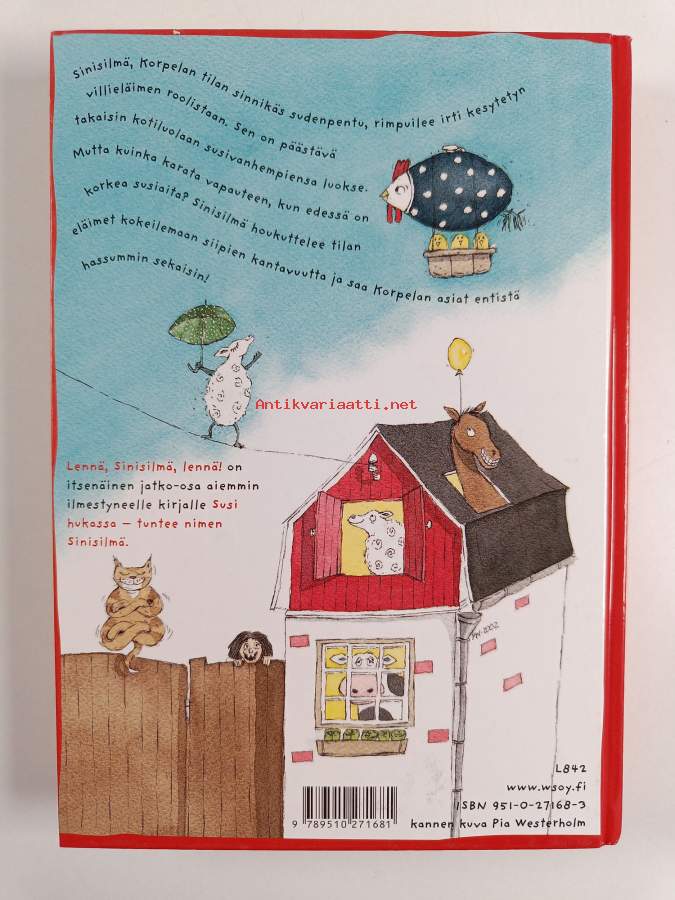 Sinisilmä, Korpelan tilan sinnikäs sudenpentu, rimpuilee irti kesytetyn
villieläimen roolistaan. Sen on päästävä
takaisin kotiluolaan susivanhempiensa luokse.
Mutta kuinka karata vapauteen, kun edessä on
korkea susiaita? Sinisilmä houkuttelee tilan
eläimet kokeilemaan siipien kantavuutta ja saa Korpelan asiat entistä
hassummin sekaisin!
Antikvariaatti.net
Lennä, Sinisilmä, lennä! on
itsenäinen jatko-osa aiemmin
ilmestyneelle kirjalle Susi
hukassa – tuntee nimen
Sinisilmä.
PW-2002
L842
www.wsoy.fi
ISBN 951-0-27168-3
kannen kuva Pia Westerholm
9 789510 271681